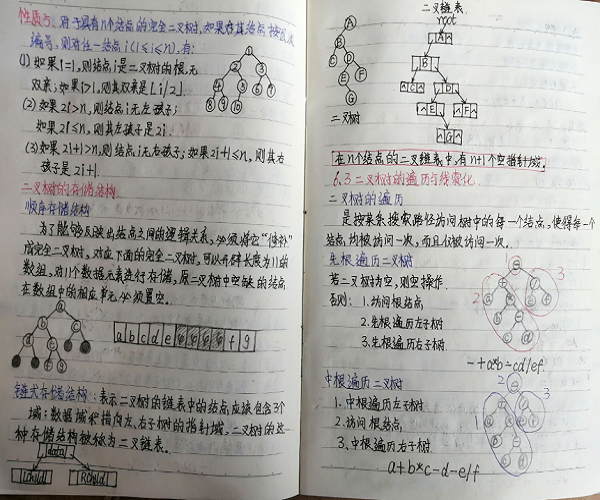 性质5: 对于具有n个结点的完全二叉树, 如果对其结点按层次
编号, 则对任一结点i(1≤i≤n), 有:
(1) 如果i=1, 则结点i是二叉树的根, 无
双亲; 如果i>1, 则其双亲是⌊i/2⌋.
(2) 如果2i>n, 则结点i无左孩子;
如果2i≤n, 则其左孩子是2i.
(3) 如果2i+1>n, 则结点i无右孩子; 如果2i+1≤n, 则其右
孩子是2i+1.
1
2 3
4 5 6 7
8 9 10
二叉树的存储结构
顺序存储结构
为了能够反映出结点之间的逻辑关系, 必须将它"修补"
成完全二叉树, 对应下面的完全二叉树, 可以开辟长度为11的
数组, 对11个数据元素进行存储, 原二叉树中空缺的结点
在数组中的相应单元必须置空.
a b c d e f g
链式存储结构: 表示二叉树的链表中的结点应该包含3个
域: 数据域和指向左、右子树的指针域, 二叉树的这
种存储结构被称为二叉链表.
data
Lchild Rchild
二叉链表
root
A
B
C D
E F
G
二叉树
在n个结点的二叉链表中, 有n+1个空指针域.
6.3 二叉树的遍历与线索化
二叉树的遍历
是按某条搜索路径访问树中的每一个结点, 使得每一个
结点均被访问一次, 而且仅被访问一次.
先根遍历二叉树
若二叉树为空, 则空操作
否则: 1.访问根结点
2.先根遍历左子树
3.先根遍历右子树
-+a*b-cd/ef
中根遍历二叉树
1.中根遍历左子树
2.访问根结点
3.中根遍历右子树
a+b*c-d-e/f